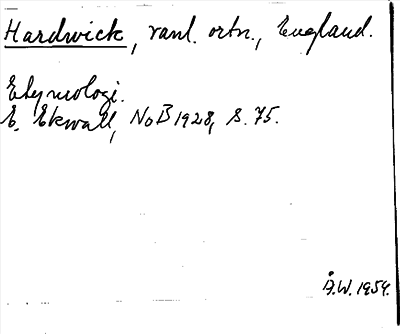 Hardwick, vanl. ortn., England.
Etymologi.
E. Ekwall, NoB 1928, s. 75.
Å.W. 1959.